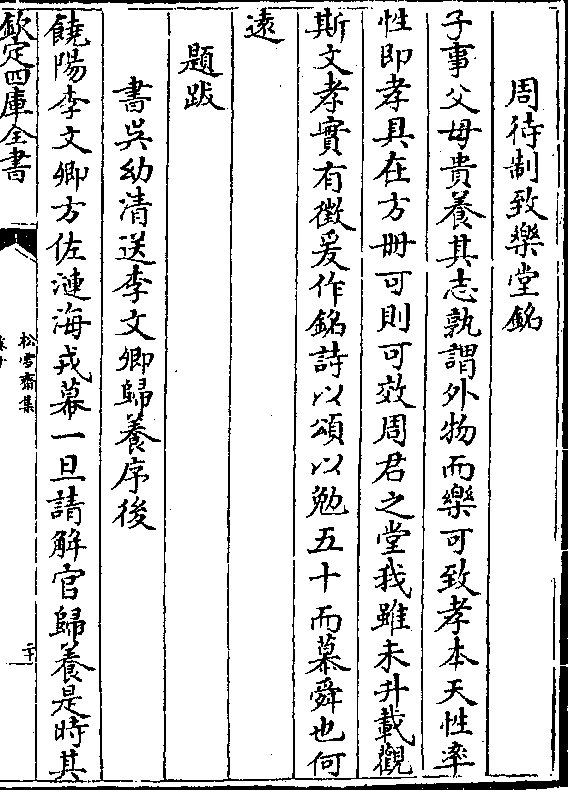 周待制致樂堂銘
子事父母貴養其志孰謂外物而樂可致孝本天性率
性即孝具在方冊可則可效周君之堂我雖未升載觀
斯文孝實有徵爰作銘詩以頌以勉五十而慕舜也何
遠
題跋
書吳幼清送李文卿歸養序後
饒陽李文卿方佐漣海戎幕一旦請解官歸養是時其
欽定四庫全書
松雪齋集